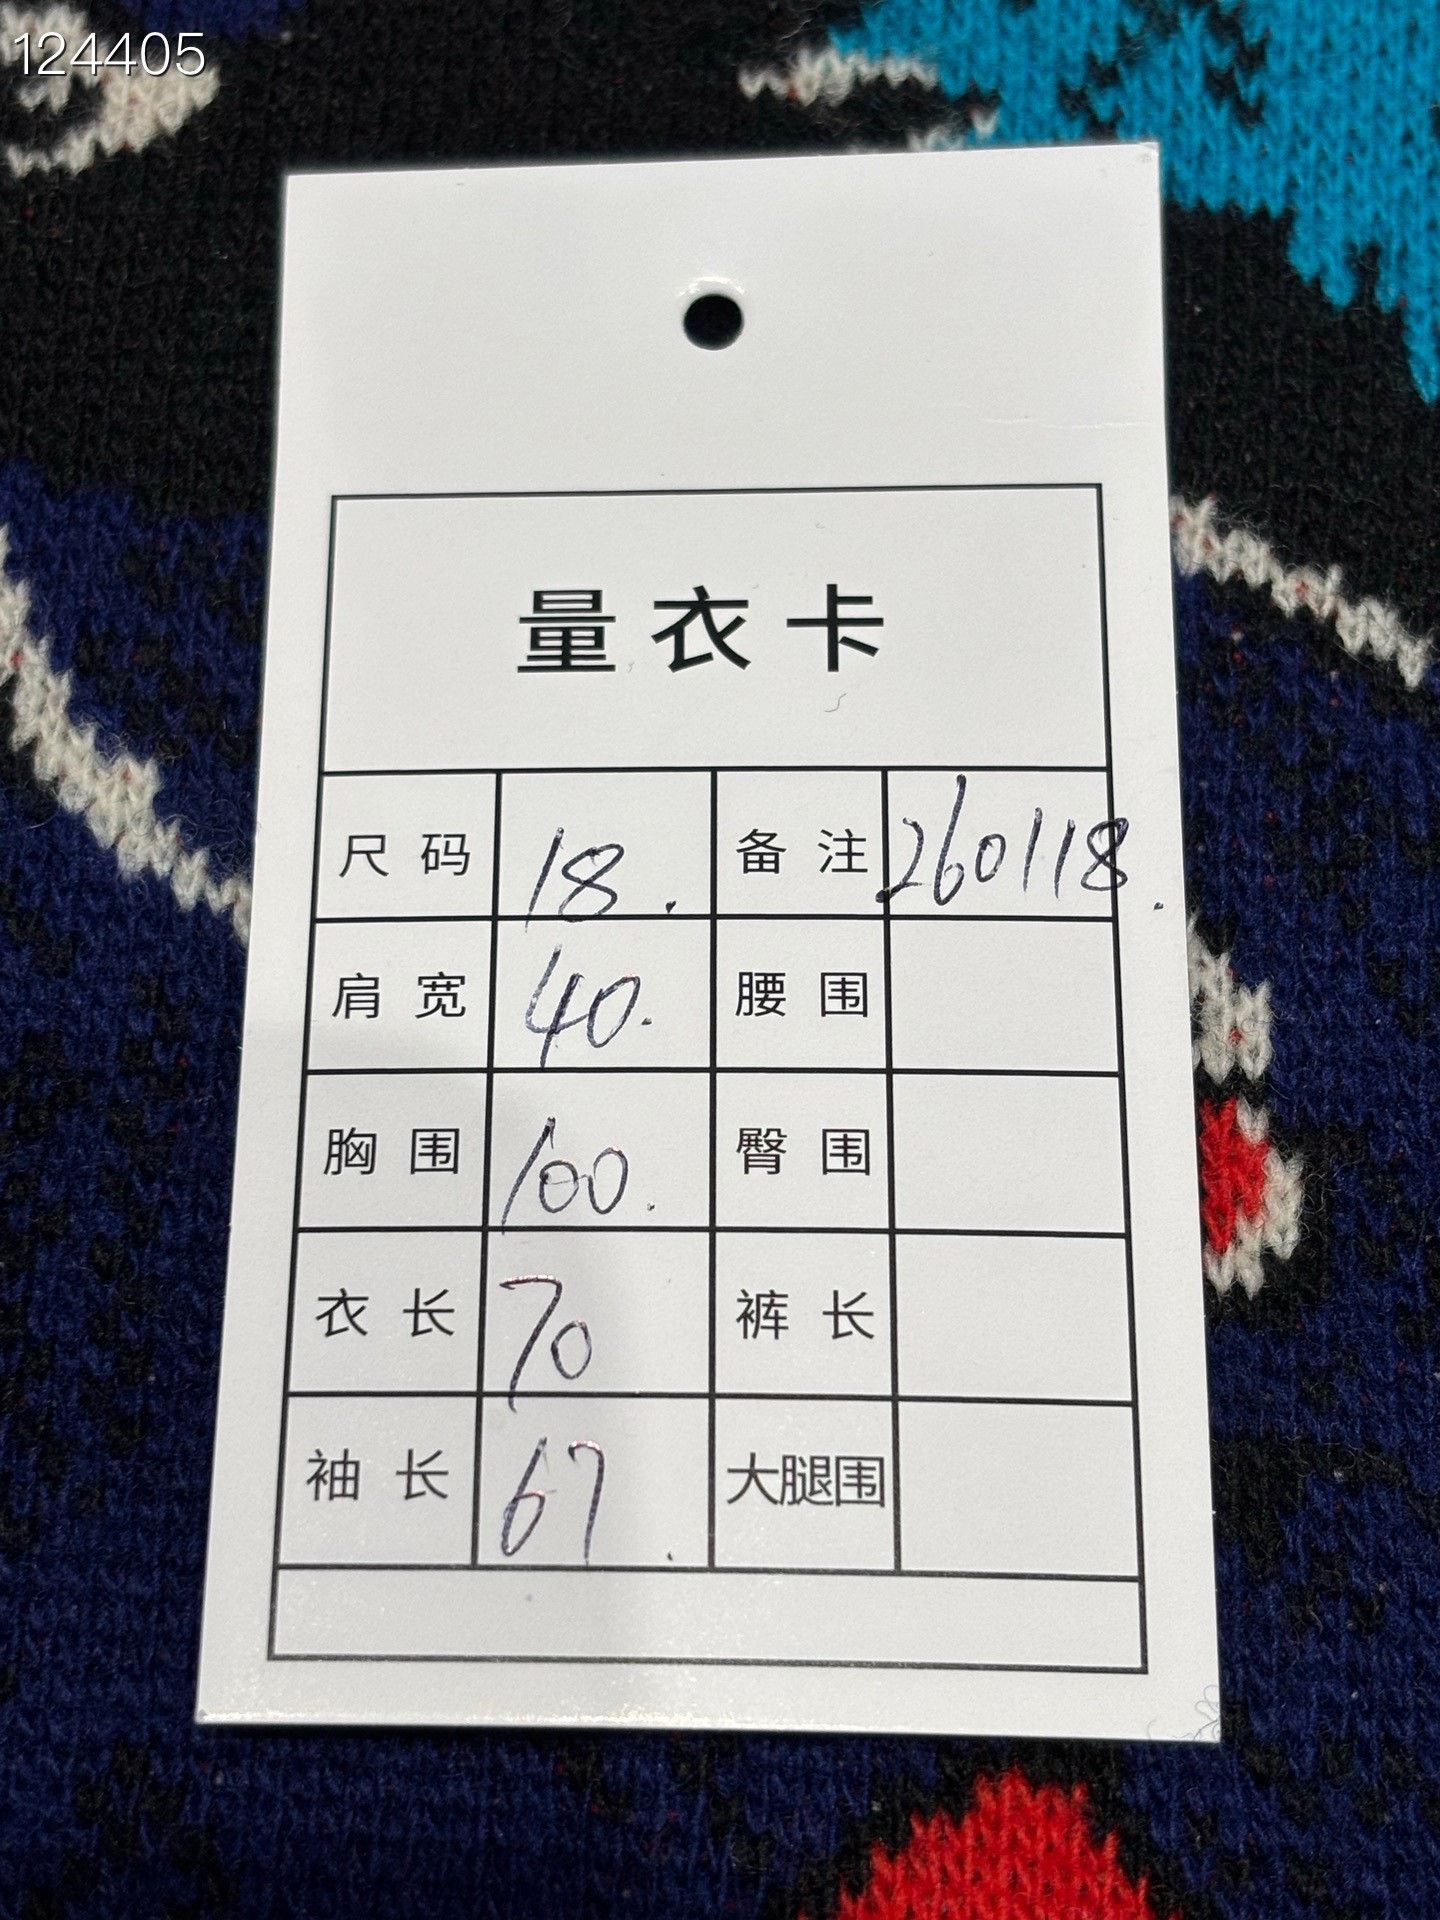 124405
量衣卡
尺码 18. 备注 260118.
肩宽 40. 腰围
胸围 100. 臀围
衣长 70 裤长
袖长 67. 大腿围